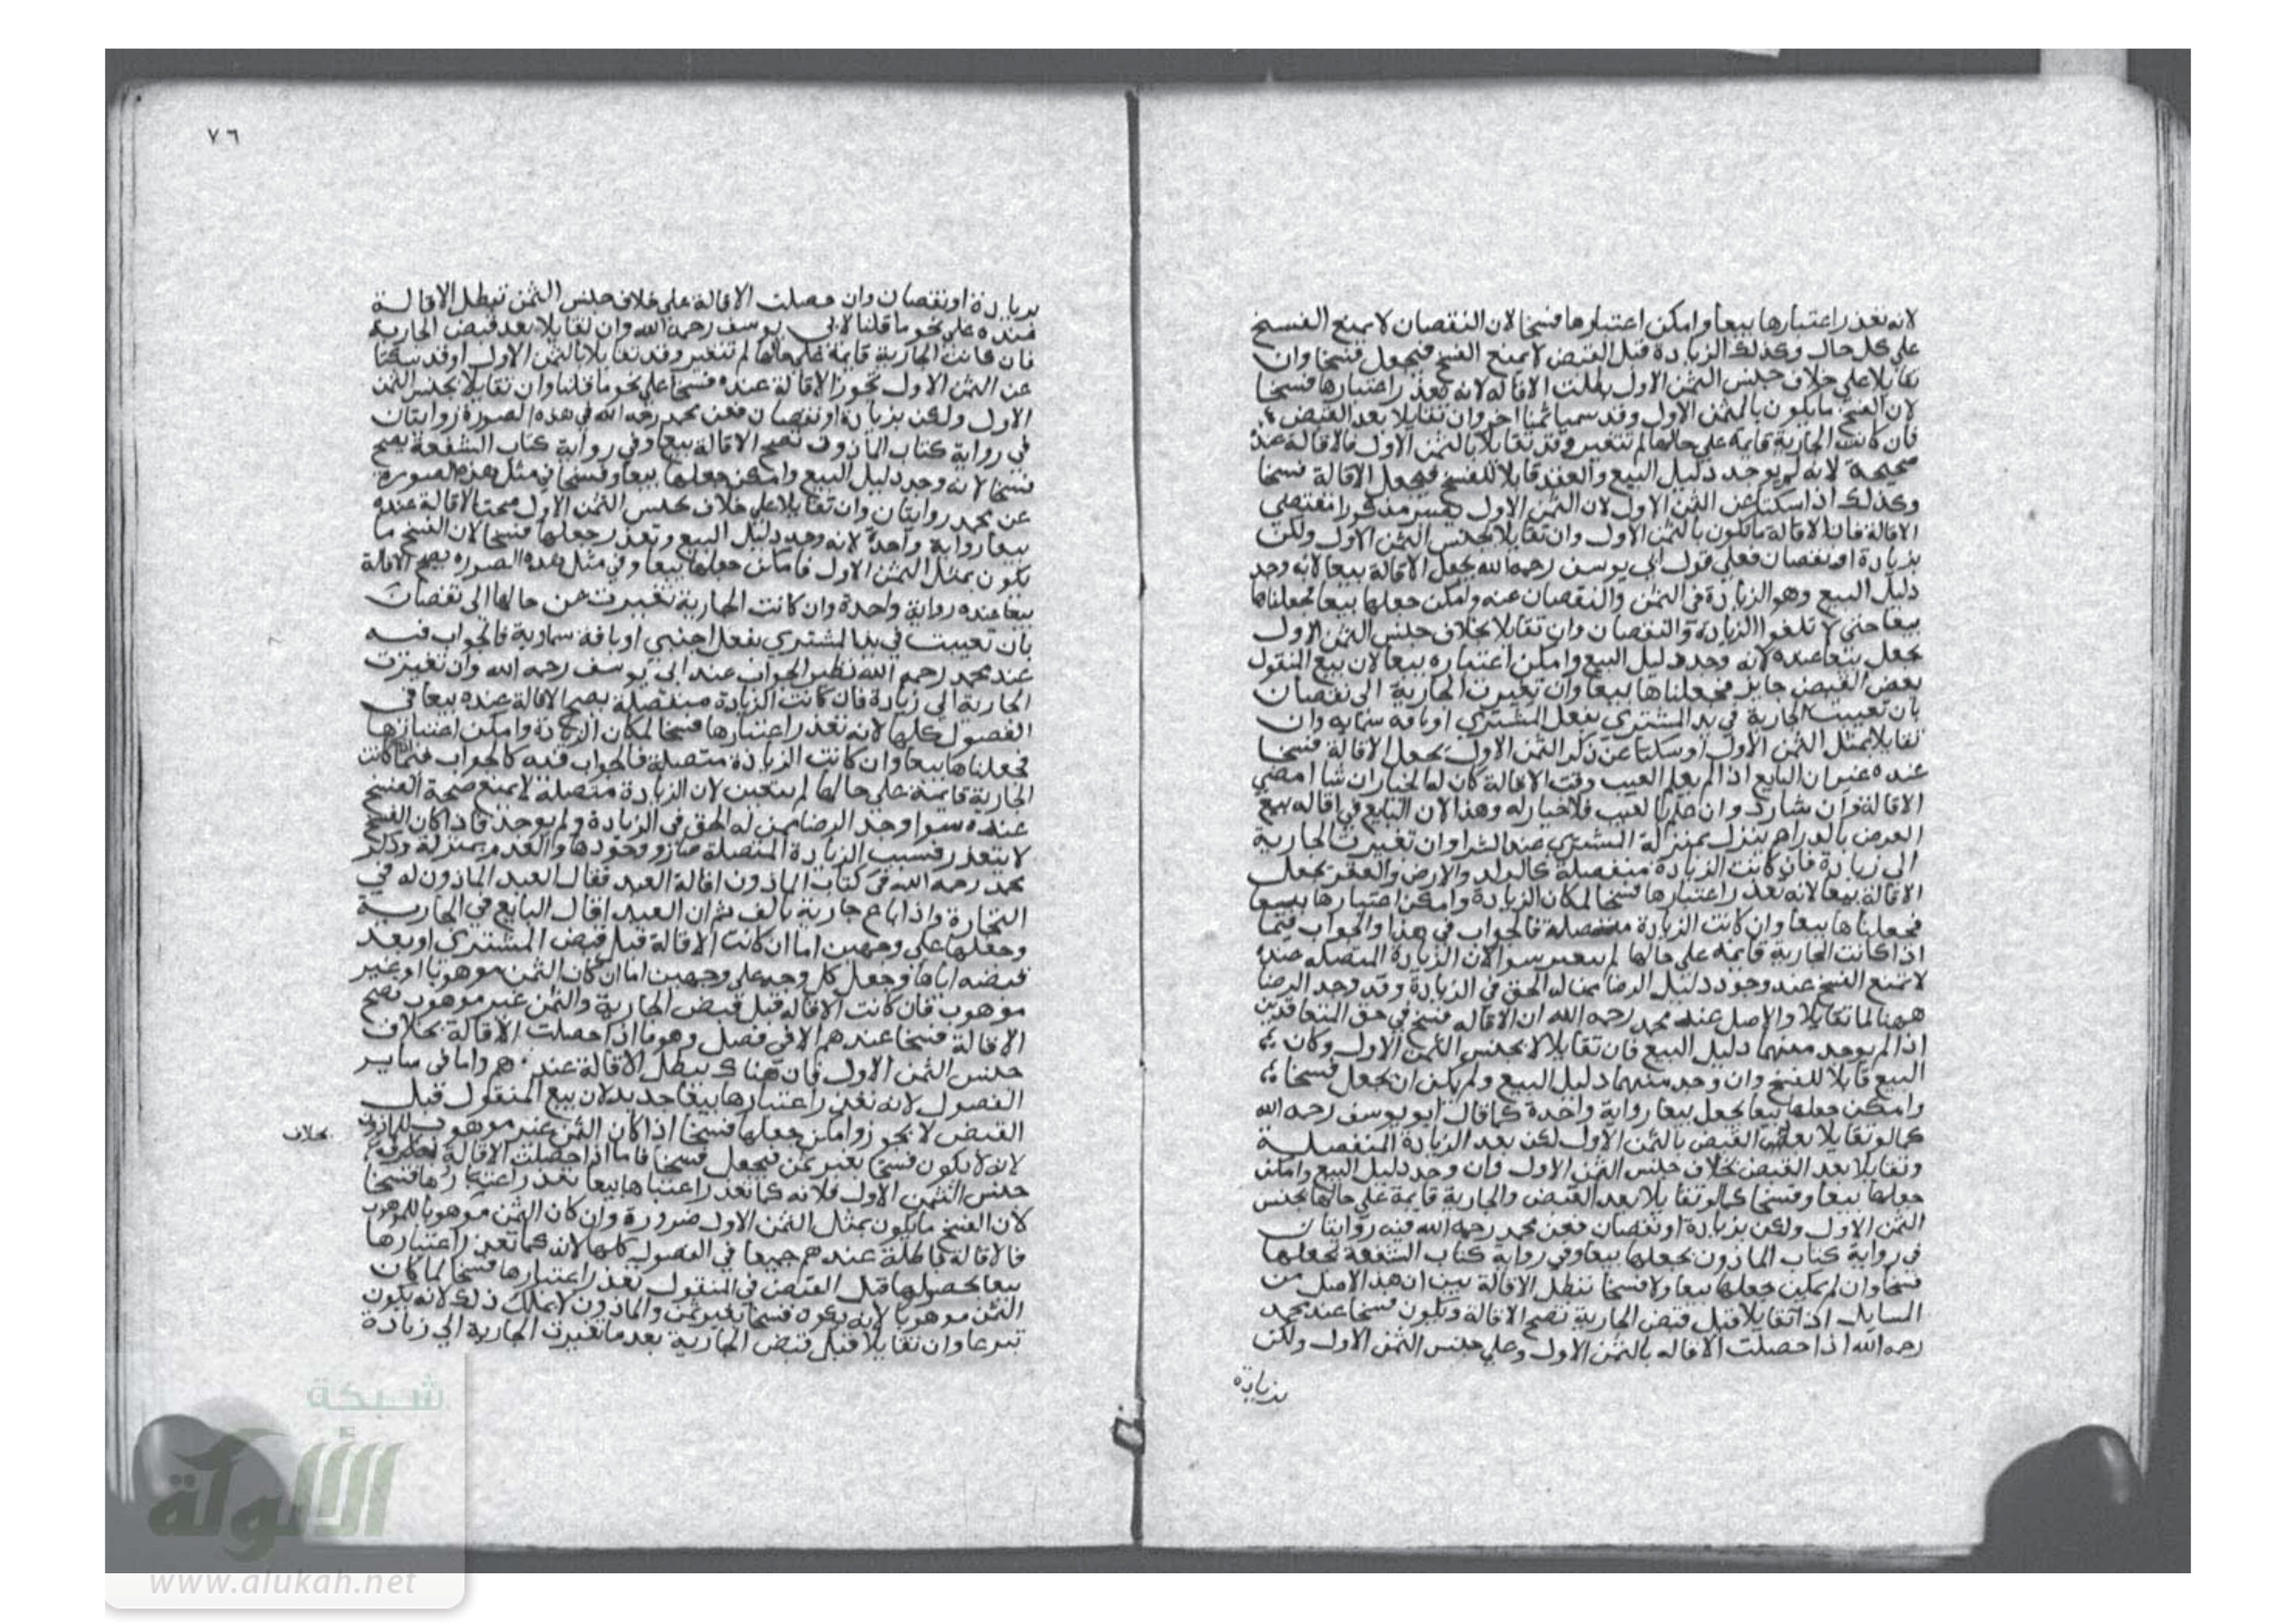 لانه تعذر اعتبارها بيعا وامكن اعتبارها فسخا لان النقصان لا يمنع الفسخ
على كل حال وكذلك الزيادة قبل القبض لا يمنع الفسخ فيجعل فسخا وان
تقايلا على خلاف جنس الثمن الاول بطلت الاقاله لانه تعذر اعتبارها فسخا
لان الفسخ ما يكون بالثمن الاول وقد سميا ثمنا اخر وان تقايلا بعد القبض
فان كانت الجارية قايمة على حالها لم تتغير وقد تقايلا بالثمن الاول فالاقالة عنده
صحيحة لانه لم يوجد دليل البيع والعقد قابلا للفسخ فيجعل الاقالة فسخا
وكذلك اذا سكتا عن الثمن الاول لان الثمن الاول يصير مذكورا بمقتضى
الاقالة فان الاقالة ما تكون بالثمن الاول وان تقايلا بجنس الثمن الاول ولكن
بزيادة او نقصان فعلى قول ابي يوسف رحمه الله يجعل الاقالة بيعا لانه وجد
دليل البيع وهو الزيادة في الثمن والنقصان عنه وامكن جعلها بيعا فجعلناها
بيعا حتى لا تلغوا الزيادة والنقصان وان تقايلا بخلاف جنس الثمن الاول
يجعل بيعا عنده لانه وجد دليل البيع وامكن اعتباره بيعا لان بيع المنقول
بعض القبض جايز فجعلناها بيعا وان تغيرت الجارية الى نقصان
بان تعيبت الجارية في يد المشتري بفعل المشتري او بافة سماية وان
تقايلا بمثل الثمن الاول او سكتا عن ذكر الثمن الاول يجعل الاقالة فسخا
عنده غير ان البايع اذا لم يعلم العيب وقت الاقالة كان له الخيار ان شا امضى
الاقالة وان شا رد وان علم بالعيب فلا خيار له وهذا لان البايع في اقاله بيع
العرض بالدراهم ينزل بمنزلة المشتري عند الشرا وان تغيرت الجارية
الى زيادة فان كانت الزيادة منفصلة كالولد والارض والعقر يجعل
الاقالة بيعا لانه تعذر اعتبارها فسخا لمكان الزيادة وامكن اعتبارها بيعا
فجعلناها بيعا وان كانت الزيادة متصلة فالجواب في هذا والجواب فيما
اذا كانت الجارية قايمة على حالها لم يتغير سوا لان الزيادة المتصله عنده
لا تمنع الفسخ عند وجود دليل الرضا ممن له الحق في الزيادة وقد وجد الرضا
ههنا لما تقايلا والاصل عند محمد رحمه الله ان الاقاله فسخ في حق المتعاقدين
اذا لم يوجد منهما دليل البيع فان تقايلا لا بجنس الثمن الاول وكان
البيع قابلا للفسخ وان وجد منهما دليل البيع ولم يكن ان يجعل فسخا
وامكن جعلها بيعا يجعل بيعا رواية واحدة كما قال ابو يوسف رحمه الله
كما لو تقايلا بعد القبض بالثمن الاول لكن بعد الزيادة المنفصلة
وتقايلا بعد القبض بخلاف جنس الثمن الاول وان وجد دليل البيع وامكن
جعلها بيعا وفسخا كما لو تقايلا بعد القبض والجارية قايمة على حالها بجنس
الثمن الاول ولكن بزيادة او نقصان فعن محمد رحمه الله فيه روايتان
في رواية كتاب الماذون يجعلها بيعا وفي رواية كتاب الشفعة يجعلها
فسخا وان لم يمكن جعلها بيعا ولا فسخا تبطل الاقالة بين ان هذا الاصل من
السايل اذا تقايلا قبل قبض الجارية تصح الاقالة وتكون فسخا عند محمد
رحمه الله اذا حصلت الاقاله بالثمن الاول وعلى جنس الثمن الاول ولكن
بزيادة
٧٦
بزيادة او نقصان وان حصلت الاقالة على خلاف جنس الثمن تبطل الاقالة
عنده على نحو ما قلنا لابي يوسف رحمه الله وان تقايلا بعد قبض الجارية
فان كانت الجارية قايمة على حالها لم تتغير وقد تقايلا بالثمن الاول او قد سكتا
عن الثمن الاول تجوز الاقالة عنده فسخا على نحو ما قلنا وان تقايلا بجنس الثمن
الاول ولكن بزيادة او نقصان فعن محمد رحمه الله في هذه الصورة روايتان
في رواية كتاب الماذون تصح الاقالة بيعا وفي رواية كتاب الشفعة يصح
فسخا لانه وجد دليل البيع وامكن جعلها بيعا وفسخا في مثل هذه الصورة
عن محمد روايتان وان تقايلا على خلاف جنس الثمن الاول صحت الاقالة عنده
بيعا رواية واحدة لانه وجد دليل البيع وتعذر جعلها فسخا لان الفسخ ما
يكون بمثل الثمن الاول فامكن جعلها بيعا وفي مثل هذه الصوره يصح الاقالة
بيعا عنده رواية واحدة وان كانت الجارية تغيرت عن حالها الى نقصان
بان تعيبت في يد المشتري بفعل اجنبي او بافة سماوية فالجواب فيه
عند محمد رحمه الله نظير الجواب عند ابي يوسف رحمه الله وان تغيرت
الجارية الى زيادة فان كانت الزيادة منفصلة يصح الاقالة عنده بيعا في
الفصول كلها لانه تعذر اعتبارها فسخا لمكان الزيادة وامكن اعتبارها
فجعلناها بيعا وان كانت الزيادة متصلة فالجواب فيه كالجواب فيما كانت
الجارية قايمة على حالها لم يتعين لان الزيادة متصلة لا يمنع صحة الفسخ
عنده سوا وجد الرضا ممن له الحق في الزيادة ولم يوجد فاذا كان الفسخ
لا يتعذر فسبب الزيادة المتصلة صار وجودها والعدم بمنزلة وذكر
محمد رحمه الله في كتاب الماذون اقالة العبد فقال العبد الماذون له في
التجارة واذا باع جارية بالف ثم ان العبد اقال البايع في الجارية
وجعلها على وجهين اما ان كانت الاقالة قبل قبض المشتري او بعد
قبضه اياها وجعل كل وجه على وجهين اما ان كان الثمن موهوبا او غير
موهوب فان كانت الاقاله قبل قبض الجارية والثمن غير موهوب تصح
الاقالة فسخا عندهم الا في فصل وهو ما اذا حصلت الاقالة بخلاف
جنس الثمن الاول فان هناك يبطل الاقالة عندهم واما في ساير
الفصول لانه تعذر اعتبارها بيعا جديد لان بيع المنقول قبل
القبض لا يجوز وامكن جعلها فسخا اذا كان الثمن غير موهوب للماذون
بخلاف
لانه لا يكون فسخا بغير ثمن فيجعل فسخا فاما اذا حصلت الاقالة
جنس الثمن الاول فلانه كما تعذر اعتبارها بيعا تعذر اعتبارها فسخا
لان الفسخ ما يكون بمثل الثمن الاول ضرورة وان كان الثمن موهوبا
فالاقالة باطلة عندهم جميعا في الفصول كلها لانه كما تعذر اعتبارها
بيعا لحصولها قبل القبض في المنقول تعذر اعتبارها فسخا لما كان
الثمن موهوبا لانه يكون فسخا بغير ثمن والماذون لا يملك ذلك لانه يكون
تبرعا وان تقايلا قبل قبض الجارية بعد ما تغيرت الجارية الى زيادة
شبكة
الألوكة
www.alukah.net